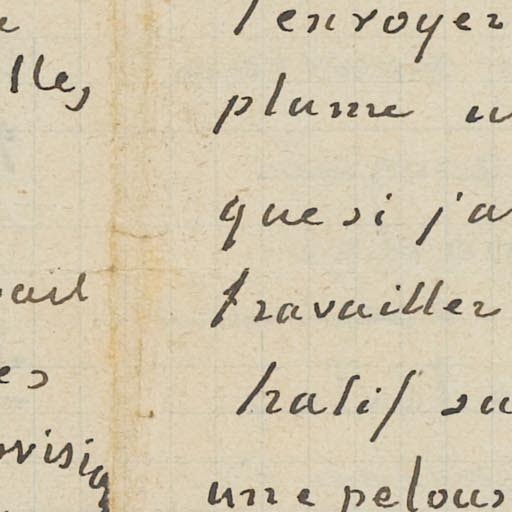 lles,
es
l'envoyer
plume
que si j'a
travailler
hatif su
une pelous